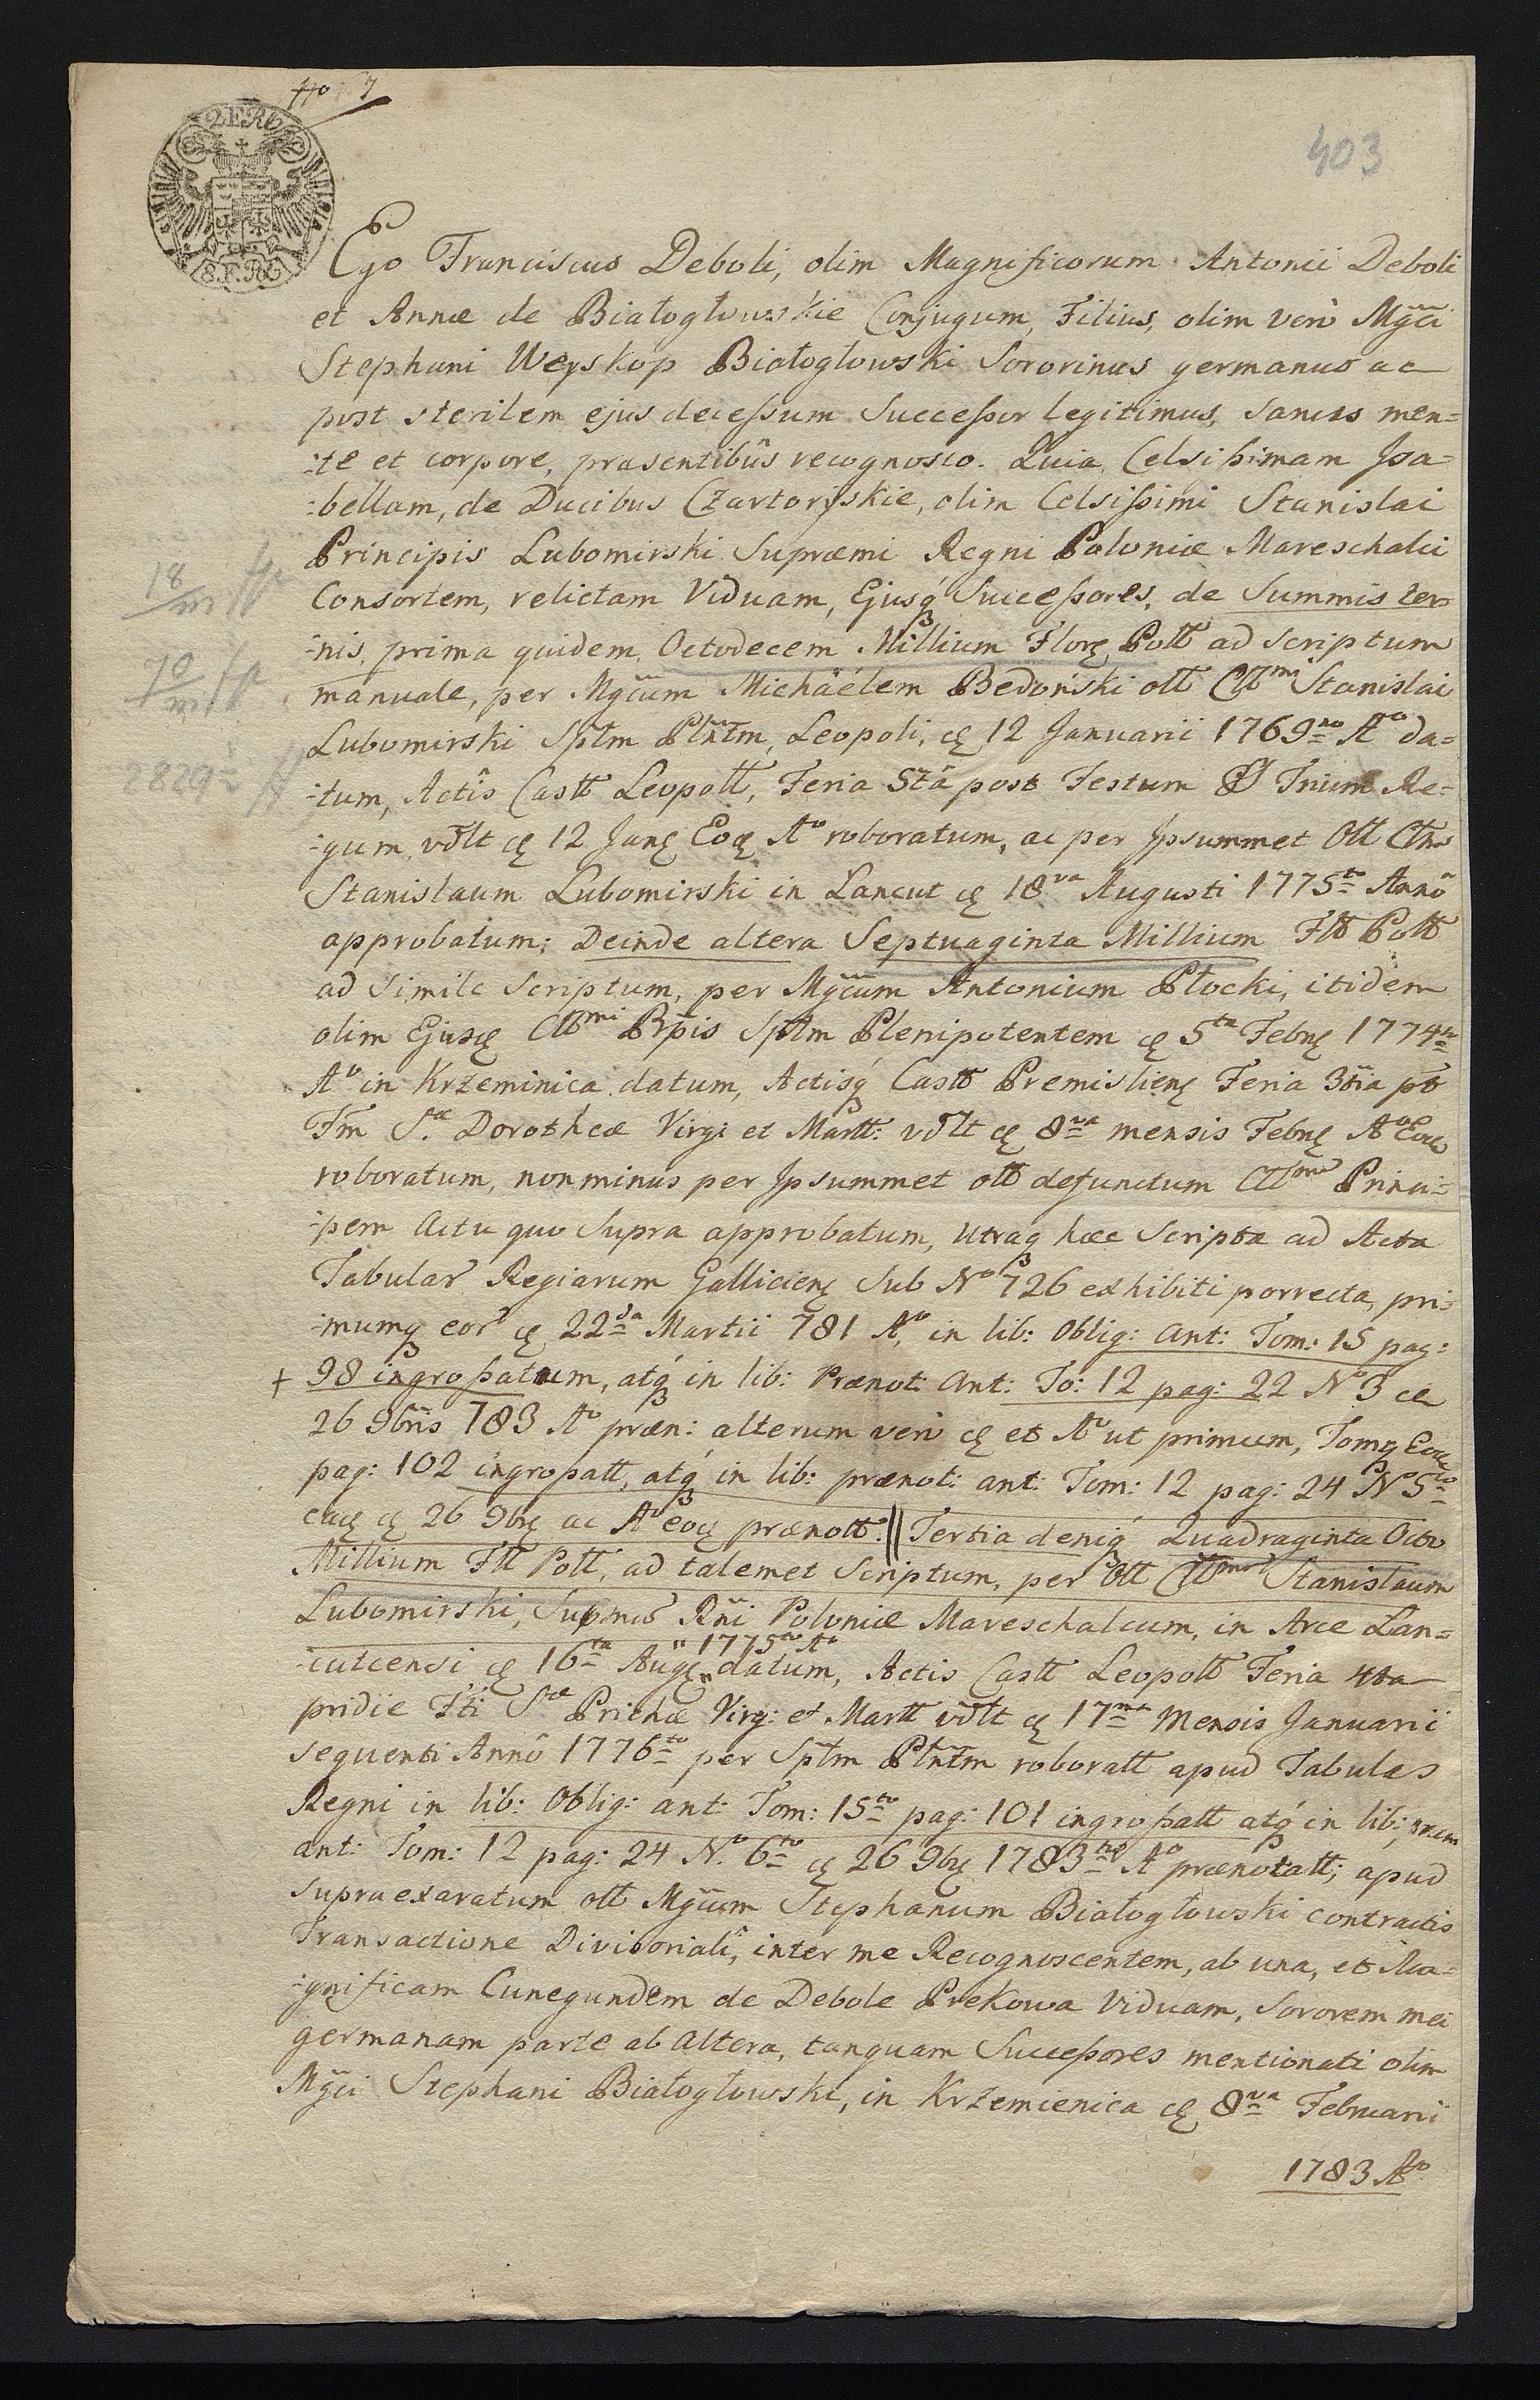 No 7
2 F.R.
8.F.R.
403
Ego Franciscus Deboli, olim Magnificorum Antonii Deboli
et Annæ de Białogłowskie Conjugum, Filius, olim verò Mgci
Stephani Weyskop Białogłowski Sororinus germanus ac
post sterilem ejus decessum Successor legitimus, sanus men=
:te et corpore, præsentibûs recognosco. Quia, Celsissimam Jsa=
:bellam, de Ducibus Czartoryskie, olim Celsissimi Stanislai
Principis Lubomirski Supræmi Regni Poloniæ Mareschalci
Consortem, relictam Viduam, Ejusq́ Successores, de Summis ter=
:nis, prima quidem, Octodecem Millium Florę Poll ad scriptum
manuale, per Mgcum Michaëlem Bedoński oll Clł mi Stanislai
Lubomirski Spłm Płntm, Leopoli, dę 12 Januarii 1769 no Ao da=
:tum, Actîs Castt Leopoll, Feria 5tâ post Festum SS Trium Re=
:gum, vdłt dę 12 Janę Eoą Ao roboratum, ac per Jpsummet Oll
Stanislaum Lubomirski in Lancut dę 18va Augusti 1775to Annô
approbatum; Deinde altera Septuaginta Millium Fll Poll
ad simile Scriptum, per Mgcum Antonium Płocki, itidem
olim Ejusdę Cll mi Prpis Spłm Plenipotentem dę 5ta Febrę 1774to
Ao in Krzeminica datum, Actisq́ Castt Premislienę Feria 3tia pt
Fm Sæ Dorotheæ Virg: et Martt: vdłt dę 8va mensis Febrę Ao Eoą
roboratum, nonminus per Jpsummet oll defunctum Cll mū Princi=
:pem Actu quo supra approbatum, Utraq hæc Scripta ad Acta
Tabular Regiarum Gallicienę Sub No 726 exhibiti porrecta, pri=
:mumq eor dę 22da Martii 781 Ao, in lib: Oblig: Ant: Tom: 15 pag:
+ 98 ingrossatum, atq́ in lib: Prænot: Ant: To: 12 pag: 22 No 3 dę
26 9bris 783 Ao præn: alterum verò dę et Ao ut primum, Tomq Eoą
pag: 102 ingrossatt, atq́ in lib: prænot: ant: Tom: 12 pag: 24 No 5to
eaę dę 26 9brę ac Ao eoą prænott. || Tertia deniq́ Quadraginta Octo
Millium Fll Poll, ad talemet Scriptum, per Oll Cll mum Stanislaum
Lubomirski, Supmū Rni Poloniæ Mareschalcum, in Arce Lan=
" 1775to Ao
:cutcensi dę 16ta Augę " datum, Actis Castt Leopoll Feria 4ta
pridie Fti Sæ Priscæ Virg: et Martt vdłt dę 17ma Mensis Januarii
sequenti Annô 1776to per Spłm Płntm roboratt apud Tabulas
Regni in lib: Oblig: ant: Tom: 15to pag: 101 ingrossatt atq́ in lib:
ant: Tom: 12 pag: 24 No 6to dę 26 9brę 1783tio Ao prænotatt; apud
supraexaratum oll Mgcum Stephanum Białogłowski contractis
Transactione Divisoriali, inter me Recognoscentem, ab una, et Ma=
:gnificam Cunegundem de Debole Prekowa Viduam, Sororem mei
germanam parte ab altera, tanquam Successores mentionati olim
Mgci Stephani Białogłowski, in Krzemienica dę 8va Februarii
1783 Ao
18/m fp
70/m fp